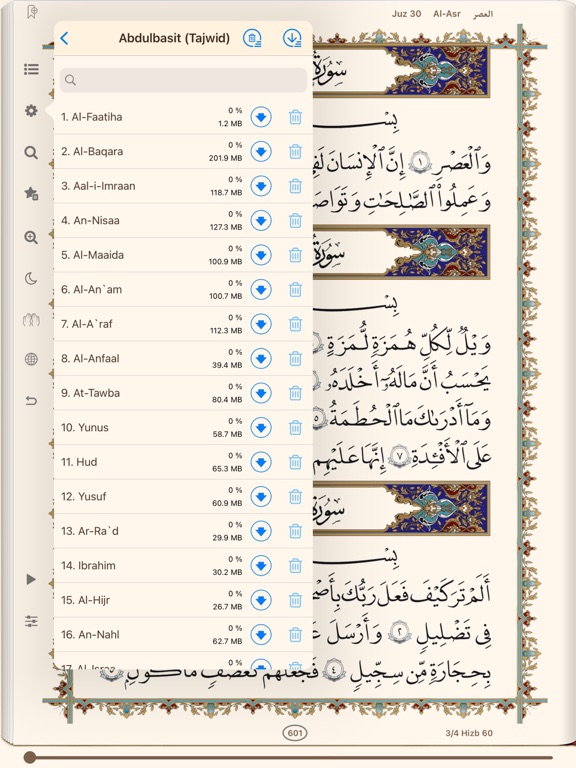 Juz 30 Al-Asr العصر
Abdulbasit (Tajwid)
1. Al-Faatiha 0 % 1.2 MB
2. Al-Baqara 0 % 201.9 MB
3. Aal-i-Imraan 0 % 118.7 MB
4. An-Nisaa 0 % 127.3 MB
5. Al-Maaida 0 % 100.9 MB
6. Al-An`am 0 % 100.7 MB
7. Al-A`raf 0 % 112.3 MB
8. Al-Anfaal 0 % 39.4 MB
9. At-Tawba 0 % 80.4 MB
10. Yunus 0 % 58.7 MB
11. Hud 0 % 65.3 MB
12. Yusuf 0 % 60.9 MB
13. Ar-Ra`d 0 % 29.9 MB
14. Ibrahim 0 % 30.2 MB
15. Al-Hijr 0 % 26.7 MB
16. An-Nahl 0 % 62.7 MB
17. Al-Israa 0 %
سُورَةُ
بِسْ
وَٱلْعَصْرِ ١ إِنَّ ٱلْإِنسَانَ لَفِ
وَعَمِلُوا۟ ٱلصَّٰلِحَٰتِ وَتَوَاصَ
سُورَةُ
بِسْ
وَيْلٌ لِّكُلِّ هُمَزَةٍ لُّمَزَةٍ
يَحْسَبُ أَنَّ مَالَهُۥٓ أَخْلَدَهُۥ
وَمَآ أَدْرَىٰكَ مَا ٱلْحُطَمَةُ ٥
عَلَى ٱلْأَفْـِٔدَةِ ٧ إِنَّهَا عَلَيْهِم
سُورَةُ
بِسْ
أَلَمْ تَرَ كَيْفَ فَعَلَ رَبُّكَ بِأَصْ
فِى تَضْلِيلٍ ٢ وَأَرْسَلَ عَ
بِحِجَارَةٍ مِّن سِجِّيلٍ ٤ فَجَعَلَهُمْ كَعَصْفٍ مَّأْكُولٍۭ
601 3/4 Hizb 60